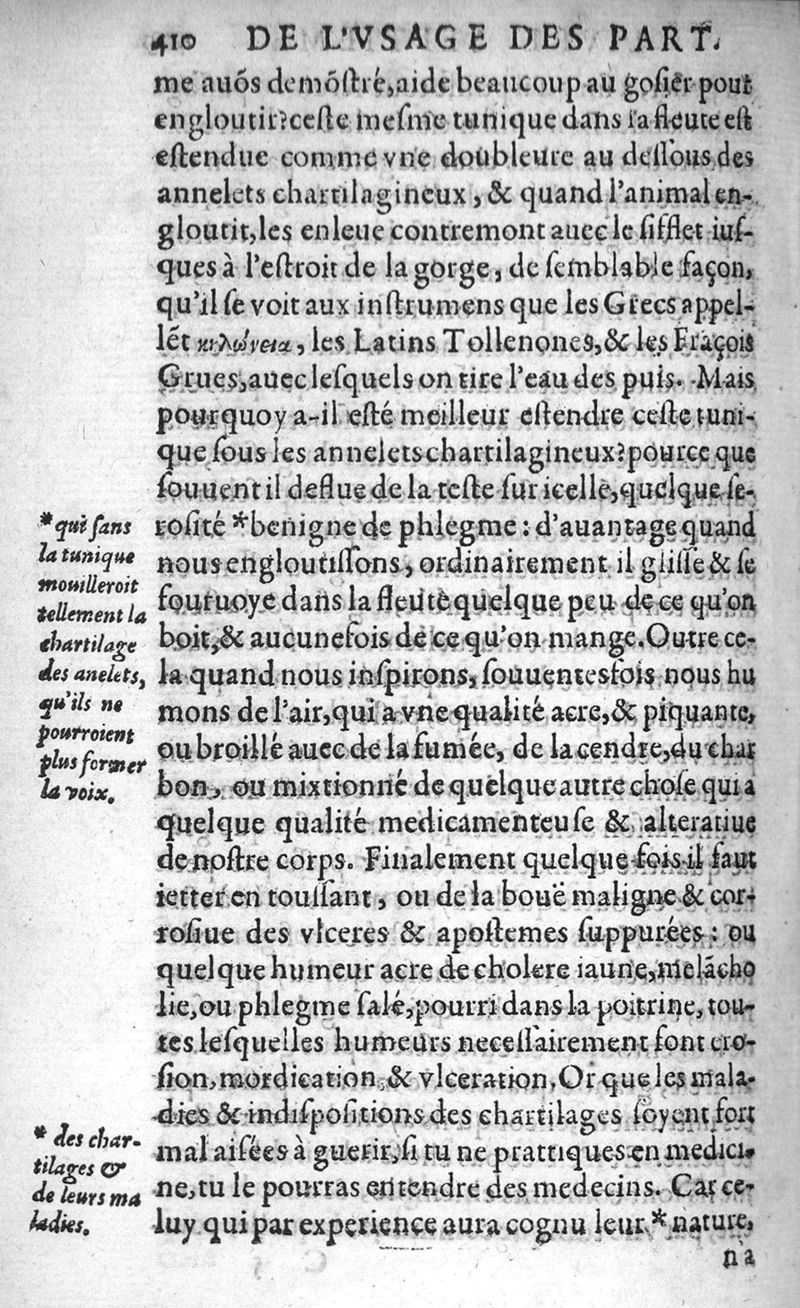 410 DE L'VSAGE DES PART.
me auõs demõſtré, aide beaucoup au goſier pour
engloutir? ceſte meſme tunique dans la fleute eſt
eſtendue comme vne doubleure au deſſous des
annelets chartilagineux, & quand l'animal en-
gloutit, les enleue contremont auec le ſifflet iuſ-
ques à l'eſtroit de la gorge, de ſemblable façon,
qu'il ſe voit aux inſtrumens que les Grecs appel-
lẽt κηλώνεια, les Latins Tollenones, & les Frãçois
Grues, auec leſquels on tire l'eau des puis. Mais
pourquoy a-il eſté meilleur eſtendre ceſte tuni-
que ſous les annelets chartilagineux? pource que
ſouuent il deflue de la teſte ſur icelle, quelque ſe-
roſité *benigne de phlegme: d'auantage quand
nous engloutiſſons, ordinairement il gliſſe & ſe
fouruoye dans la fleute quelque peu de ce qu'on
boit, & aucunefois de ce qu'on mange. Outre ce-
la quand nous inſpirons, ſouuentesfois nous hu
mons de l'air, qui a vne qualité acre, & piquante,
ou broillé auec de la fumée, de la cendre, du char
bon, ou mixtionné de quelque autre choſe qui a
quelque qualité medicamenteuſe & alteratiue
de noſtre corps. Finalement quelque fois il faut
ietter en touſſant, ou de la bouë maligne & cor-
roſiue des vlceres & apoſtemes ſuppurées: ou
quelque humeur acre de cholere iaune, melãcho
lie, ou phlegme ſalé, pourri dans la poitrine, tou-
tes leſquelles humeurs neceſſairement font ero-
ſion, mordication, & vlceration. Or que les mala-
dies & indiſpoſitions des chartilages ſoyent fort
mal aiſées à guerir, ſi tu ne prattiques en medici-
ne, tu le pourras entendre des medecins. Car ce-
luy qui par experience aura cognu leur *nature,
n'a
*qui ſans
la tunique
mouilleroit
tellement la
chartilage
des anelets,
qu'ils ne
pourroient
plus former
la voix.
* des char-
tilages &
de leurs ma
ladies.